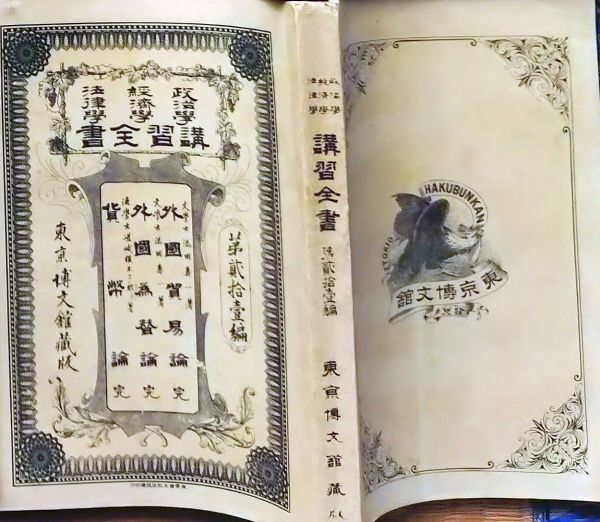 政治學
經濟學
法律學
講習全書
第貳拾壹編
外國貿易論 完
外國為替論 完
貨幣論 完
東京博文館藏版
政治學
經濟學
法律學
講習全書
第貳拾壹編
東京博文館藏版
HAKUBUNKAN
TOKIO
東京博文館